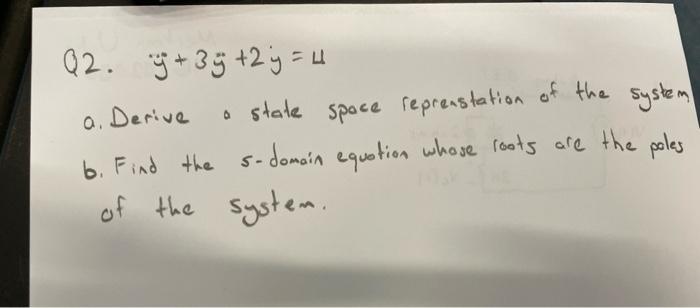 Q2. y⃛ + 3ÿ + 2ẏ = u
a. Derive a state space reprenstation of the system
b. Find the s-domain equation whose roots are the poles
of the system.